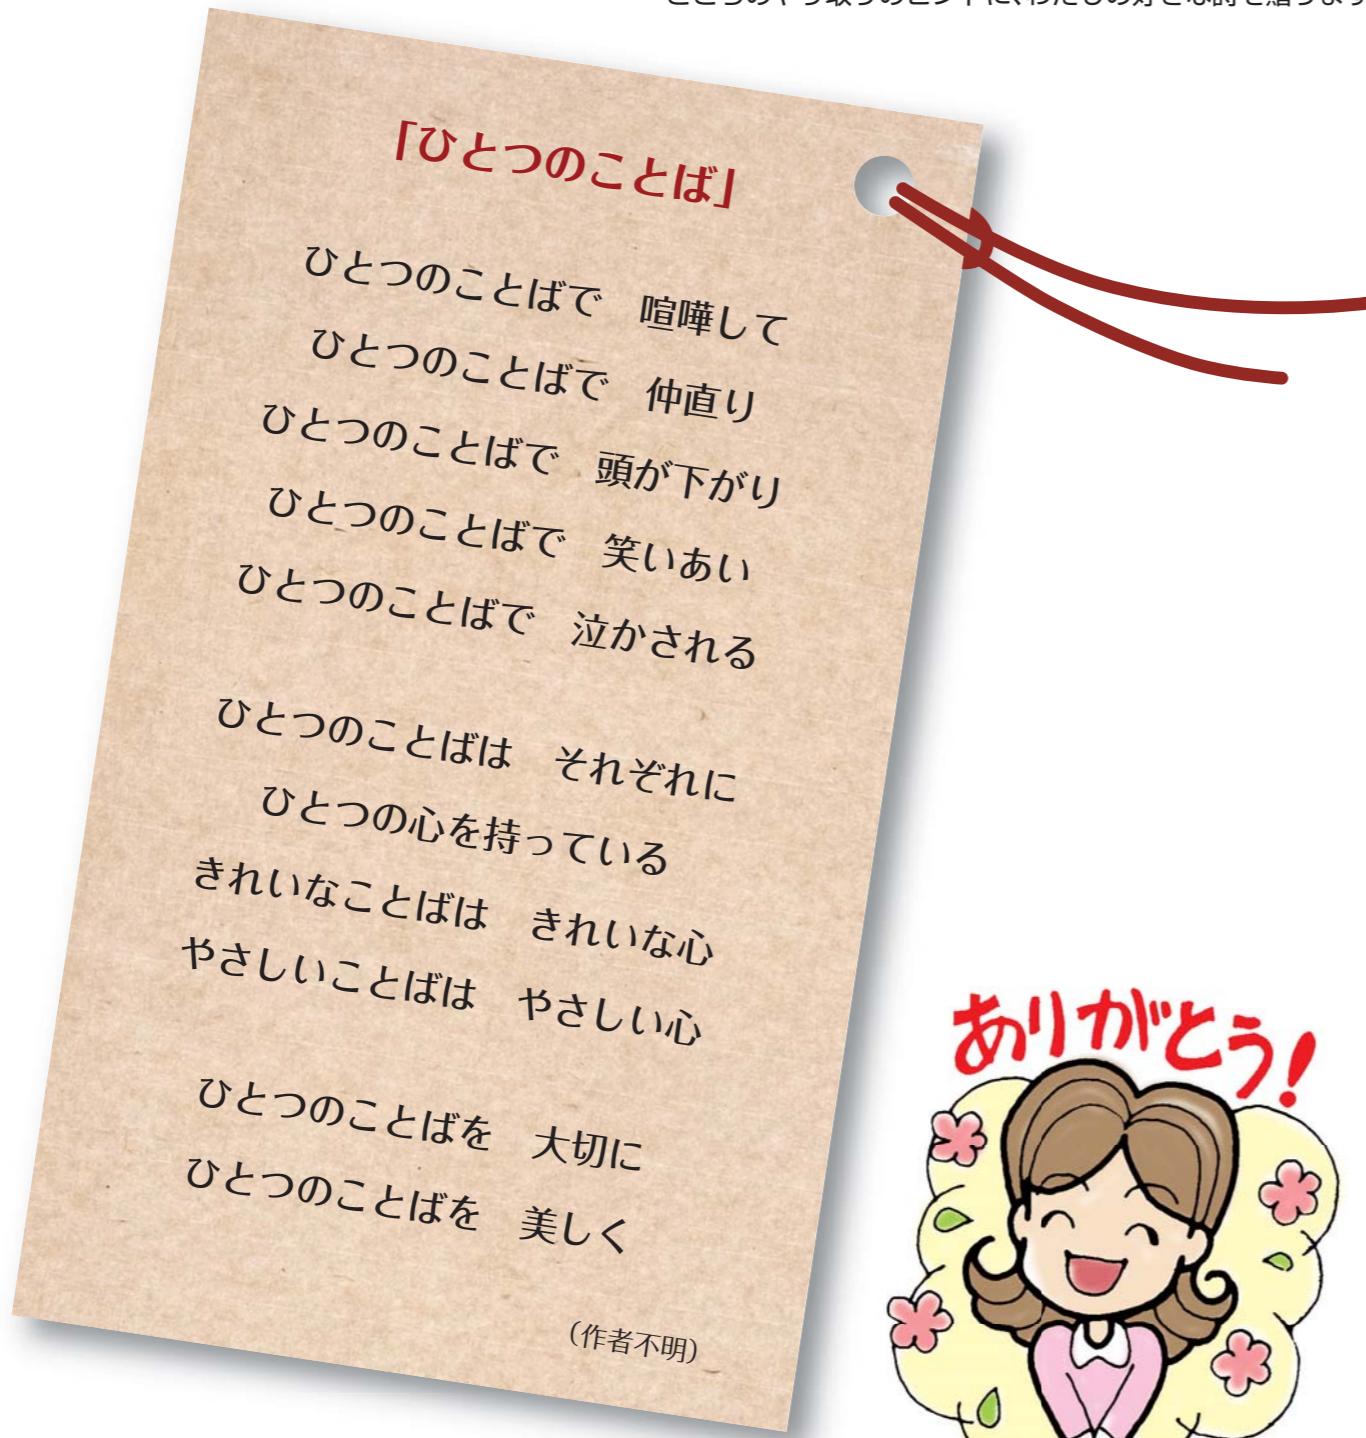 「ひとつのことば」
ひとつのことばで　喧嘩して
ひとつのことばで　仲直り
ひとつのことばで　頭が下がり
ひとつのことばで　笑いあい
ひとつのことばで　泣かされる
ひとつのことばは　それぞれに
ひとつの心を持っている
きれいなことばは　きれいな心
やさしいことばは　やさしい心
ひとつのことばを　大切に
ひとつのことばを　美しく
（作者不明）
ありがとう！